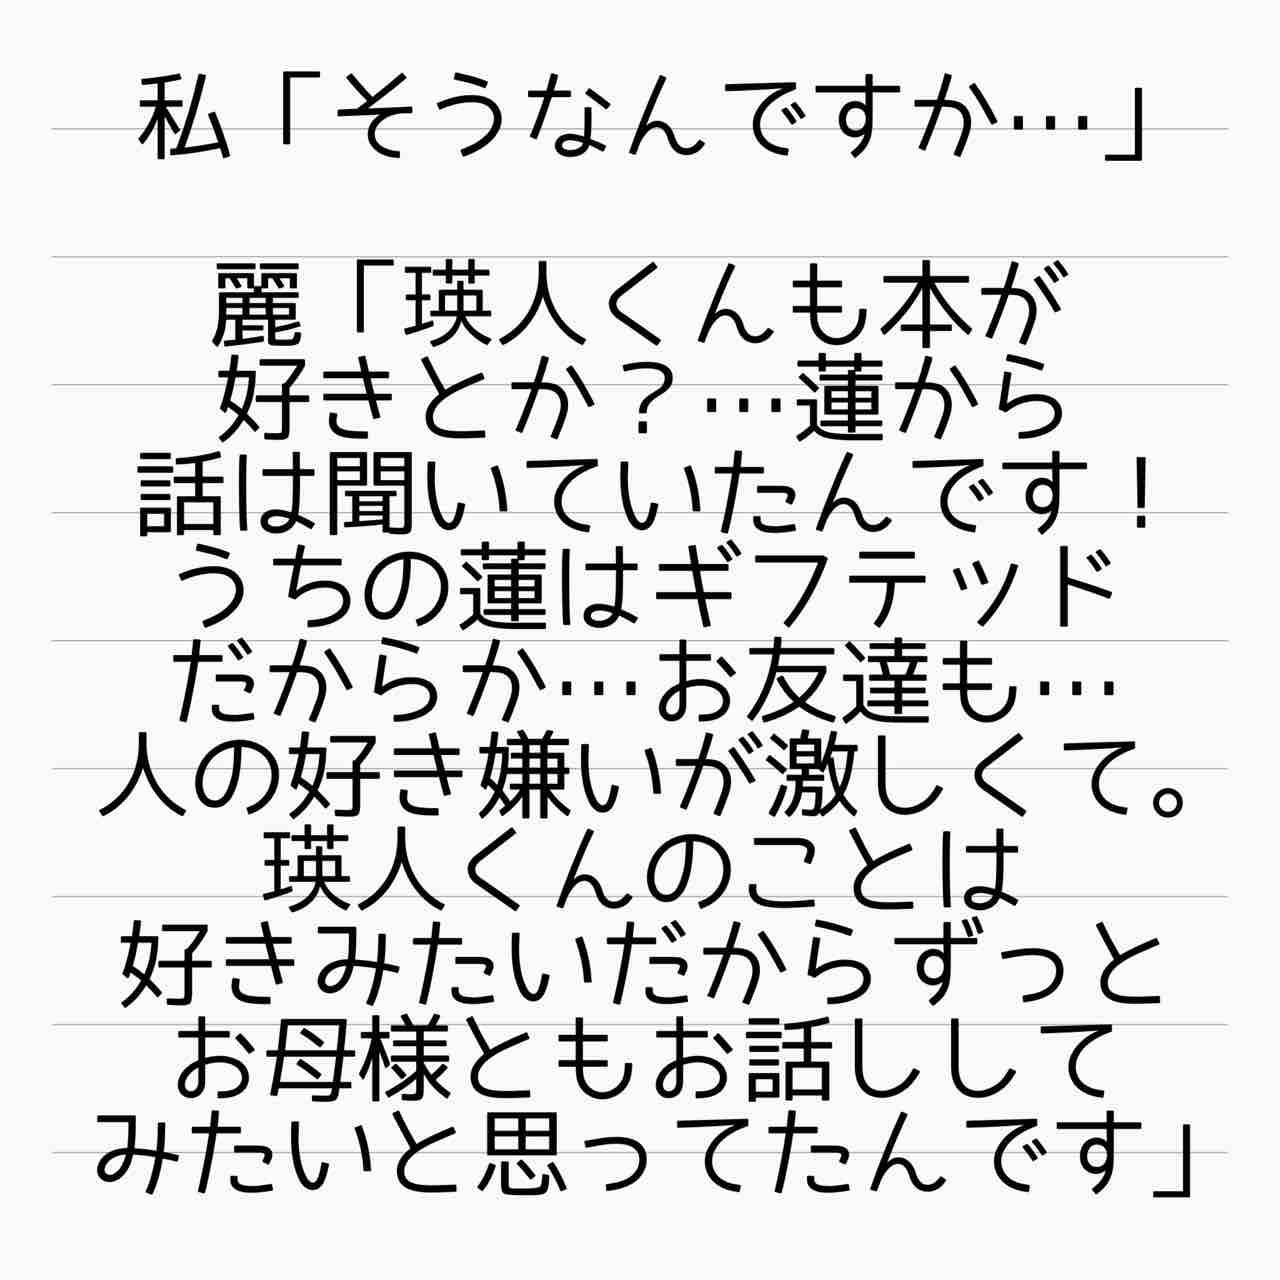 私「そうなんですか…」
麗「瑛人くんも本が
好きとか？…蓮から
話は聞いていたんです！
うちの蓮はギフテッド
だからか…お友達も…
人の好き嫌いが激しくて。
瑛人くんのことは
好きみたいだからずっと
お母様ともお話しして
みたいと思ってたんです」